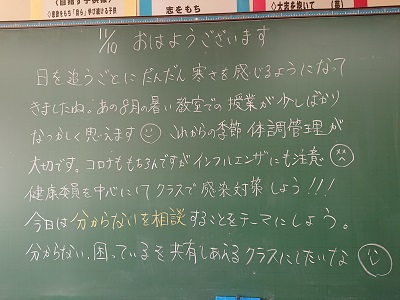 志をもち
11/10 おはようございます
日を追うごとにだんだん寒さを感じるようになって
きましたね。あの8月の暑い教室での授業が少しばかり
なつかしく思えます これからの季節 体調管理が
大切です。コロナももちろんですがインフルエンザにも注意
健康委員を中心にしてクラスで感染対策しよう!!!
今日は分からないを相談することをテーマにしよう。
分からない、困っているを共有しあえるクラスにしたいな